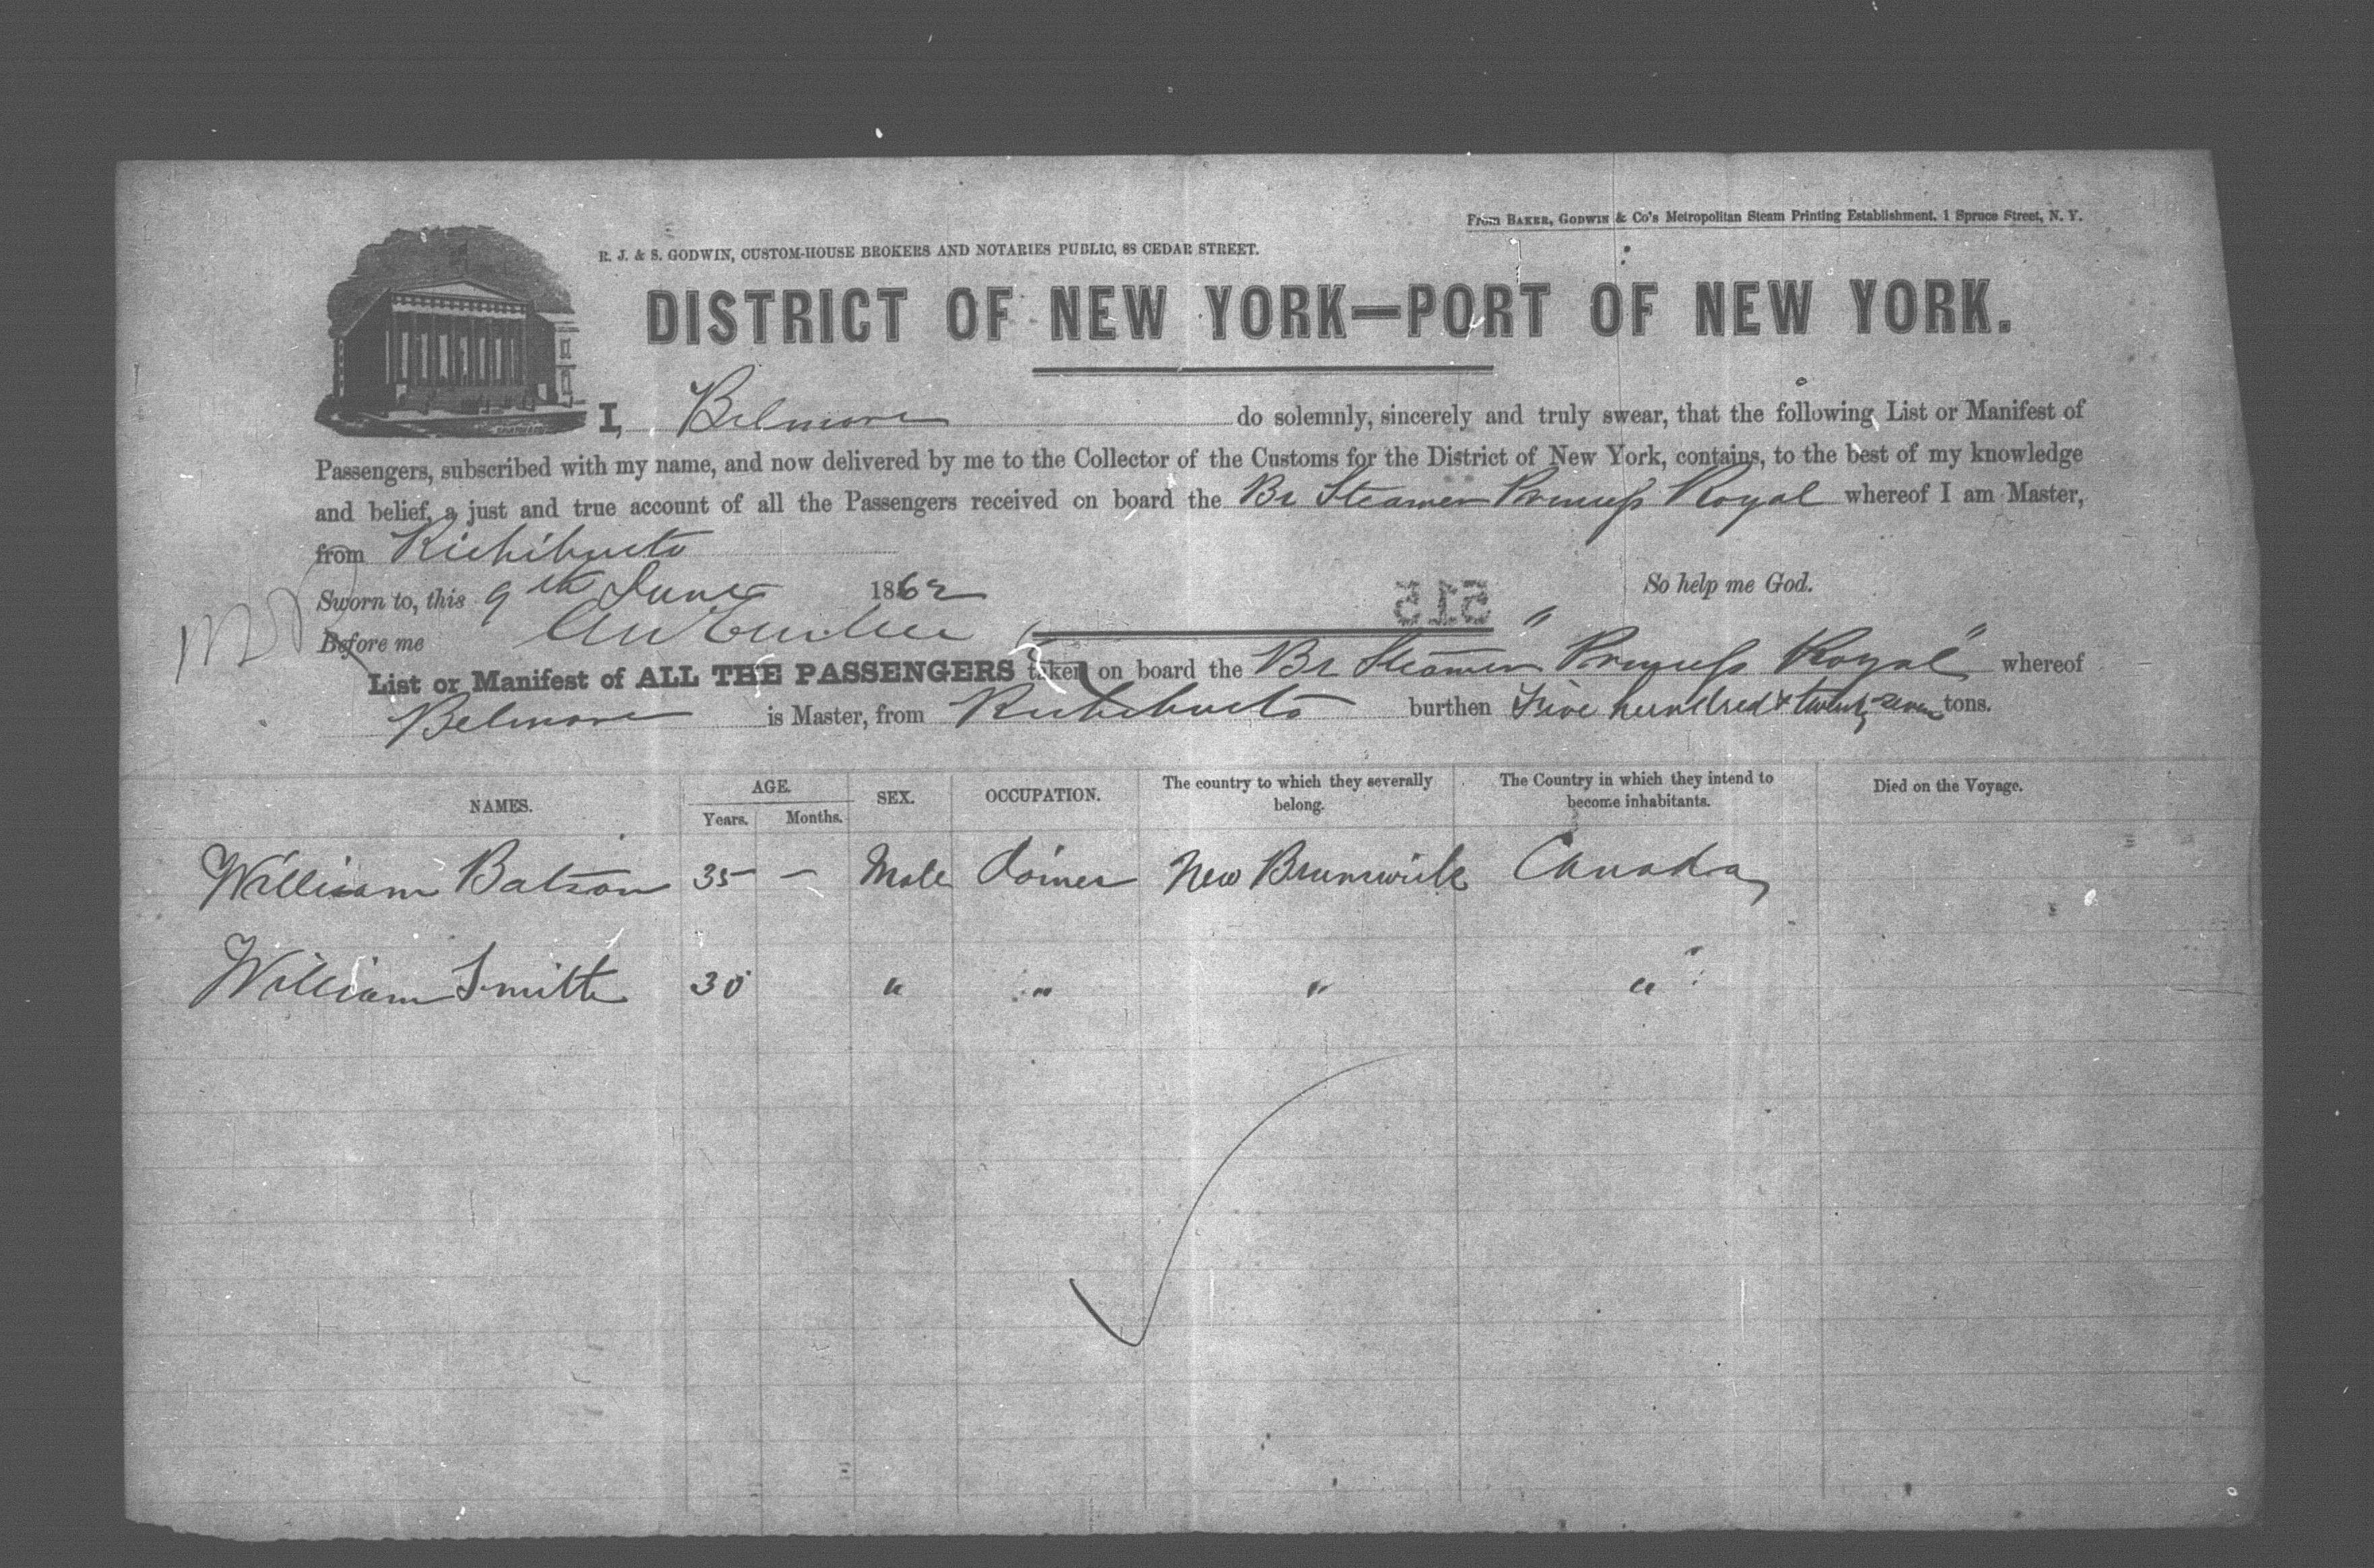 From BAKER, GODWIN & Co's Metropolitan Steam Printing Establishment, 1 Spruce Street, N. Y.
R. J. & S. GODWIN, CUSTOM-HOUSE BROKERS AND NOTARIES PUBLIC, 88 CEDAR STREET.
DISTRICT OF NEW YORK—PORT OF NEW YORK.
I, Belmore do solemnly, sincerely and truly swear, that the following List or Manifest of
Passengers, subscribed with my name, and now delivered by me to the Collector of the Customs for the District of New York, contains, to the best of my knowledge
and belief, a just and true account of all the Passengers received on board the Br Steamer Princess Royal whereof I am Master,
from Richibucto
Sworn to, this 9th June 1862 515 So help me God.
Before me
List or Manifest of ALL THE PASSENGERS taken on board the Br Steamer "Princess Royal" whereof
Belmore is Master, from Richibucto burthen Five hundred & twenty seven tons.
NAMES. AGE. SEX. OCCUPATION. The country to which they severally belong. The Country in which they intend to become inhabitants. Died on the Voyage.
Years. Months.
William Batson 35 – Male Joiner New Brunswick Canada
William Smith 30 " " " "